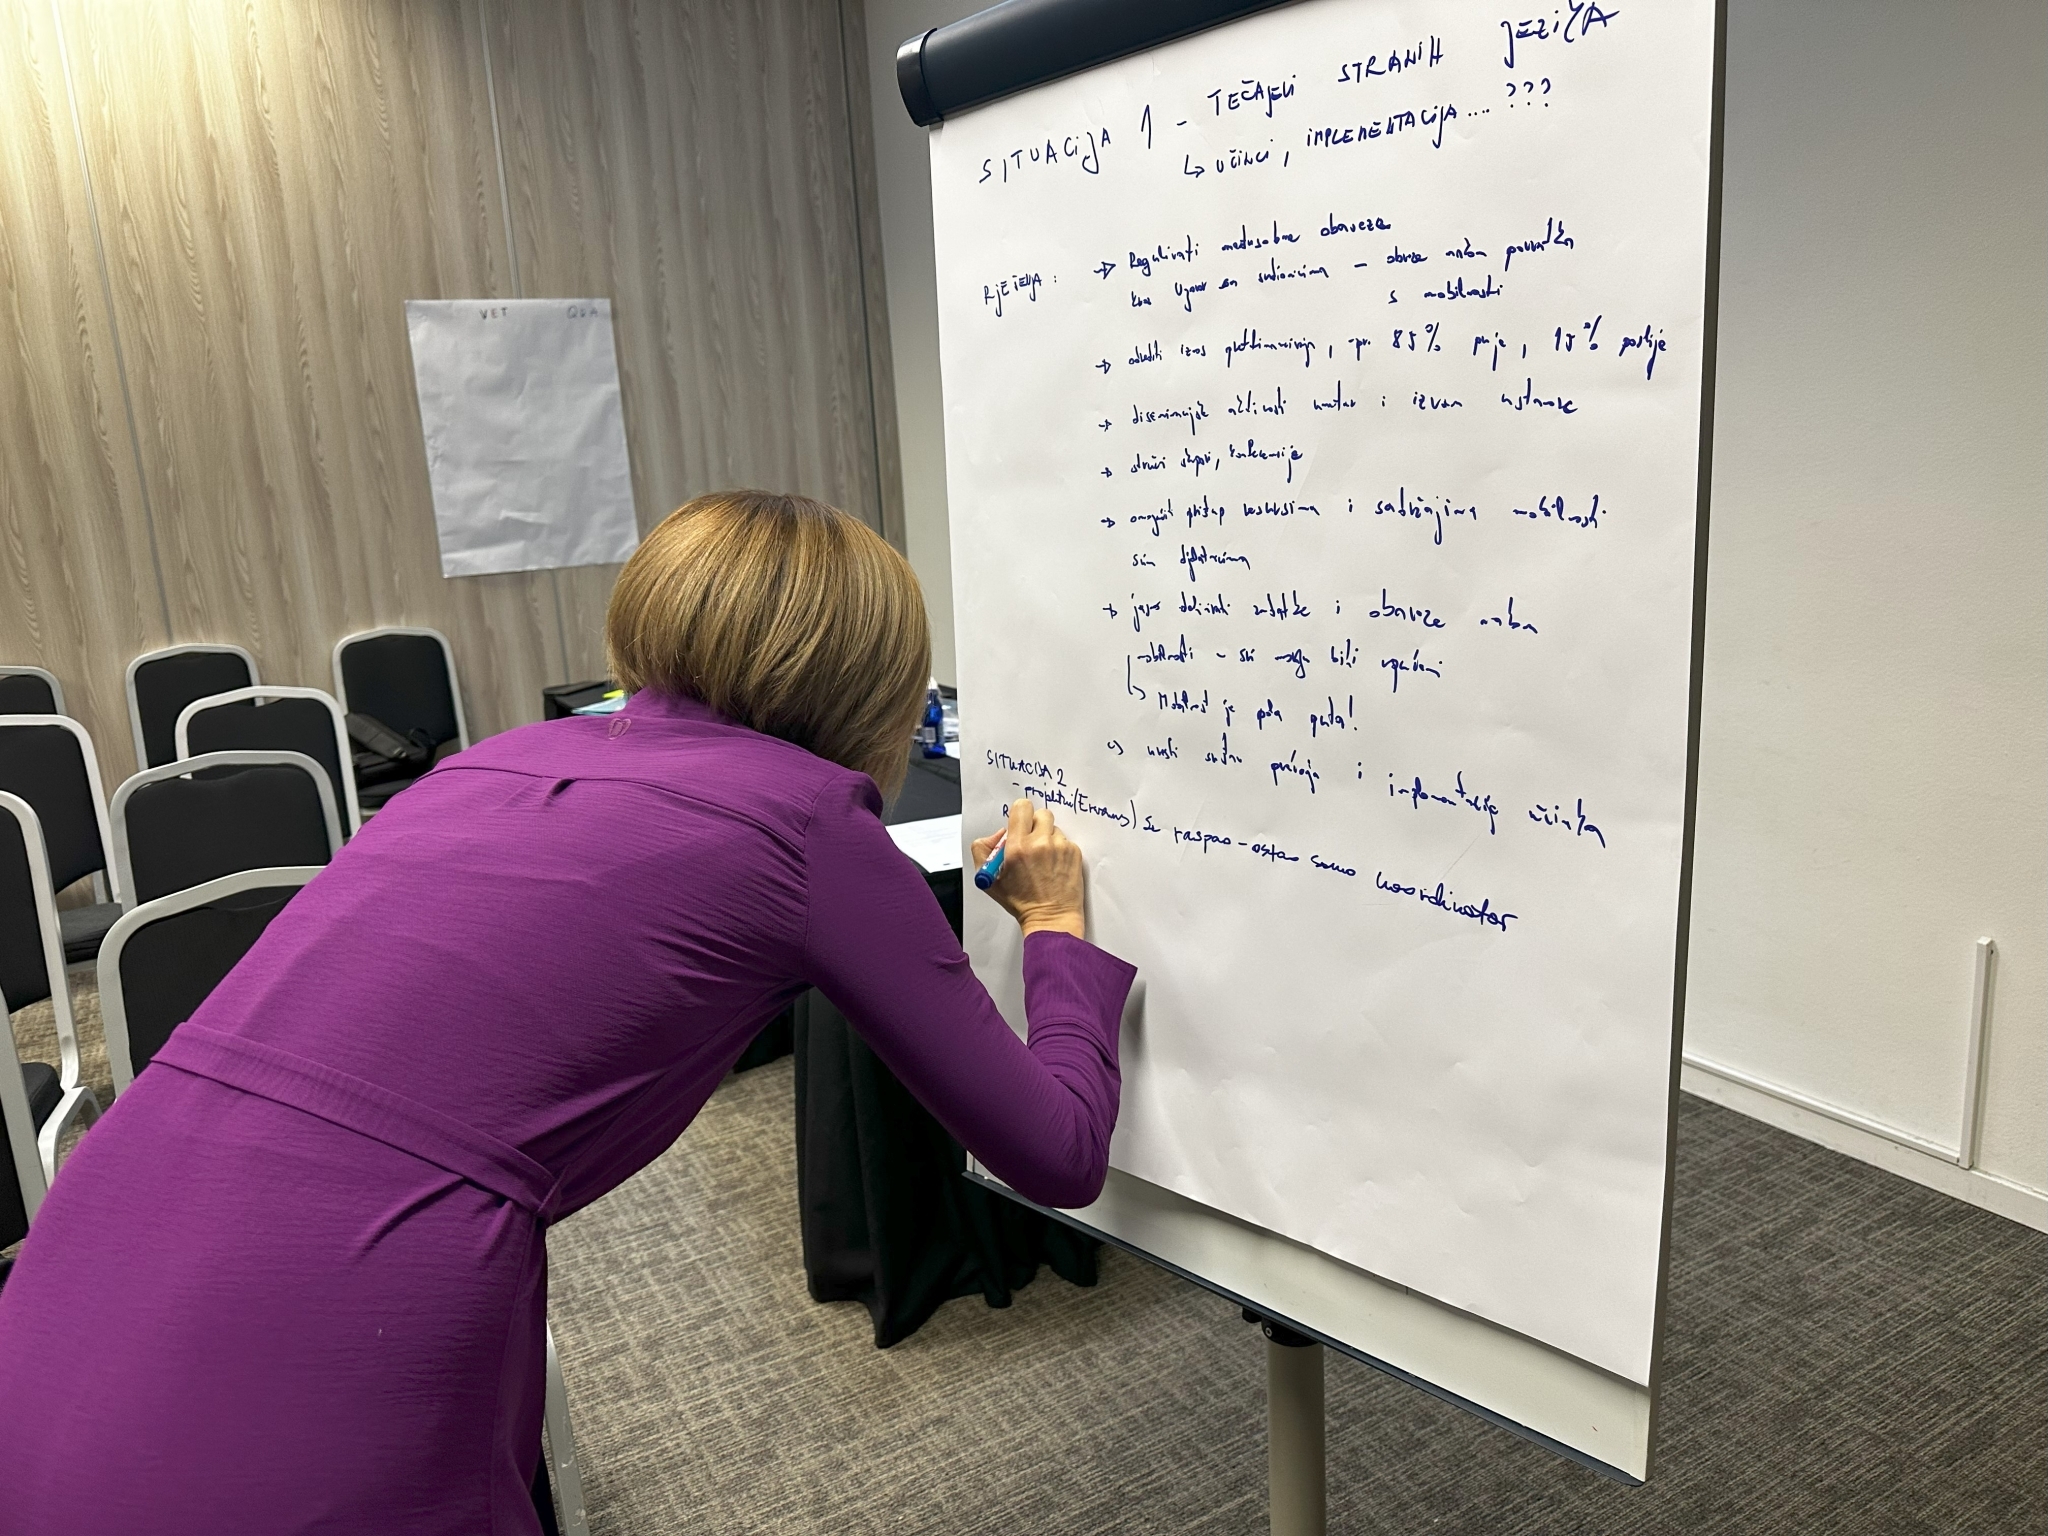 VET Q&A
SITUACIJA 1 - TEČAJEVI STRANIH JEZIKA
↳ UČINCI, IMPLEMENTACIJA.... ???
RJEŠENJA: → Regulirati međusobne obaveze
kroz Ugovor sa sudionicima - obveze nakon povratka
s mobilnosti
→ odrediti iznos predfinanciranja, npr. 85% prije, 15% poslije
→ diseminacijske aktivnosti unutar i izvan ustanove
→ stručni skupovi, konferencije
→ omogućiti pristup resursima i sadržajima mobilnosti
svim djelatnicima
→ jasno definirati zadatke i obaveze nakon
mobilnosti - svi moraju biti upućeni
↳ Mobilnost je pola puta!
→ uvesti sustav praćenja i implementacije učinka
SITUACIJA 2
- projektni (Erasmus) se raspao - ostao samo koordinator
R